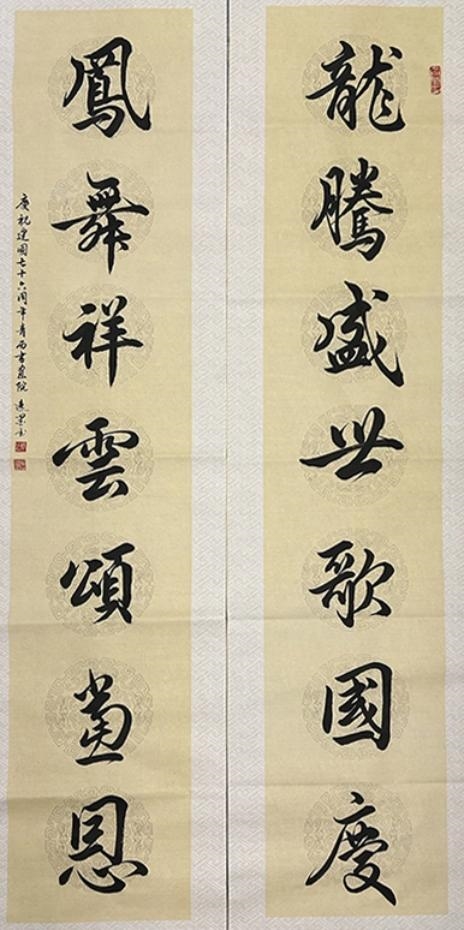 龍騰盛世歌國慶
鳳舞祥雲頌黨恩
慶祝建國七十六周年青西書画院